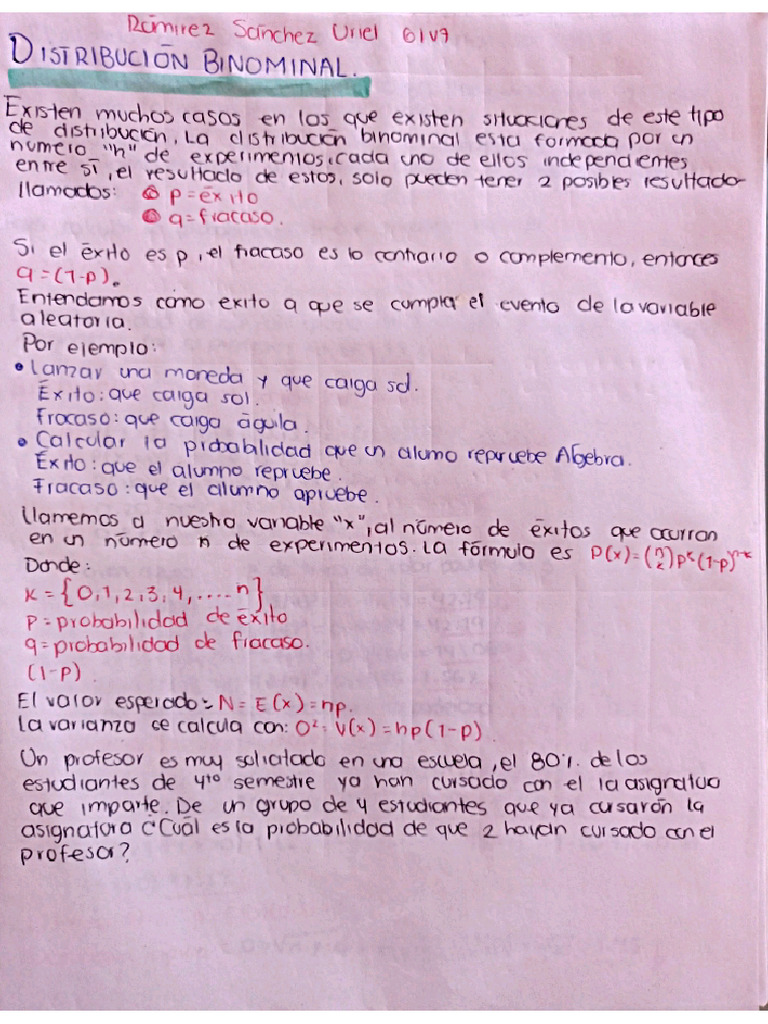 Ramirez Sánchez Uriel 61V7
DISTRIBUCIÓN BINOMINAL.
Existen muchos casos en los que existen situaciones de este tipo
de distribución. La distribución binominal esta formada por un
número "n" de experimentos, cada uno de ellos independientes
entre sí, el resultado de estos, solo pueden tener 2 posibles resultado
llamados: p = éxito
q = fracaso.
Si el éxito es p, el fracaso es lo contrario o complemento, entonces
q = (1-p).
Entendamos como exito a que se cumpla el evento de la variable
aleatoria.
Por ejemplo:
• Lanzar una moneda y que caiga sol.
Éxito: que caiga sol.
Fracaso: que caiga águila.
• Calcular la probabilidad que un alumo repruebe Álgebra.
Éxito: que el alumno repruebe.
Fracaso: que el alumno apruebe.
Llamemos a nuestra variable "x", al número de éxitos que ocurran
en un número n de experimentos. La fórmula es P(x)=(n x)p^x(1-p)^n-x
Donde:
x = {0,1,2,3,4,....n}
p = probabilidad de éxito
q = probabilidad de fracaso.
(1-p).
El valor esperado:- N = E(x) = np.
La varianza se calcula con: O² = V(x) = np(1-p)
Un profesor es muy solicitado en una escuela, el 80%. de los
estudiantes de 4to semestre ya han cursado con el la asignatua
que imparte. De un grupo de 4 estudiantes que ya cursarón la
asignatura ¿Cuál es la probabilidad de que 2 hayan cursado con el
profesor?